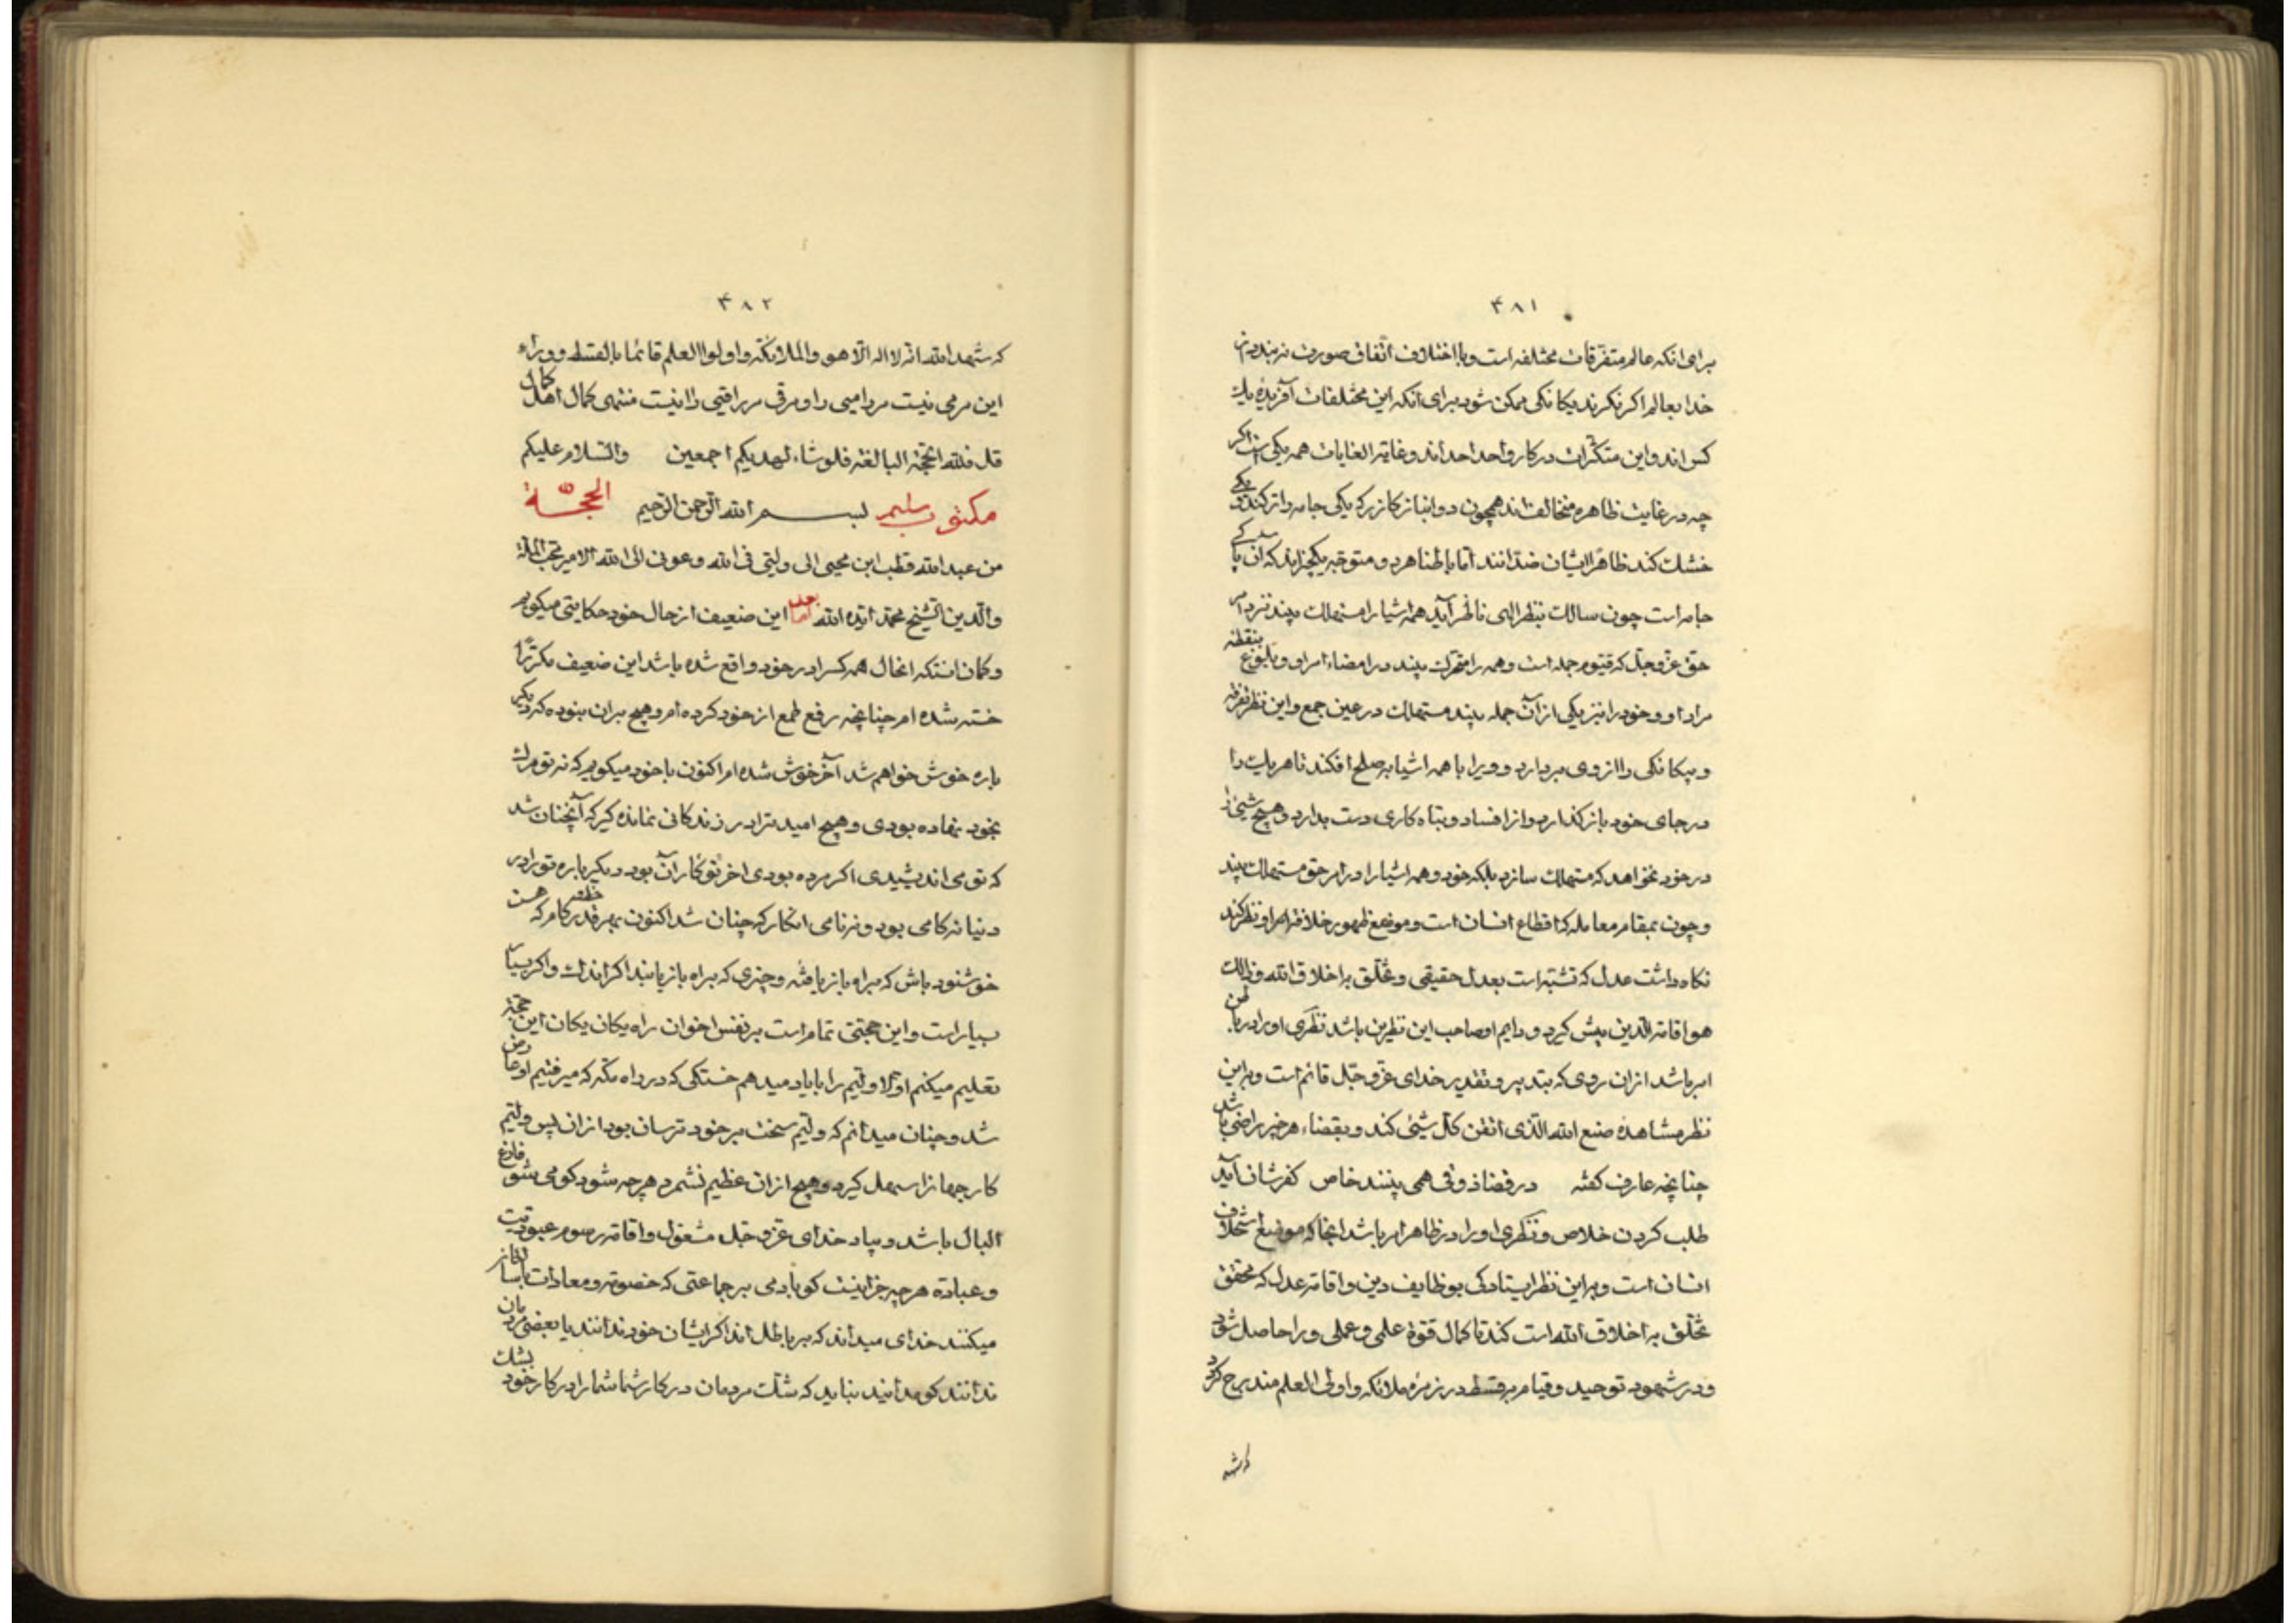 ۴۸۱
برای انکه عالم متفرقات مختلفه است و با اختلاف اتفاق صورت نه بندد از
خدا بعالم اکر نکرند یکانکی ممکن شود برای آنکه این مختلفات آفریدهٔ یک
کس اند و این متکثرات در کار واحد احد اند و غایة الغایات همه یکی است اکر
چه در غایت ظاهره متخالف اند همچون دو انباز کازر که یکی جامه را تر کند و یکی
خشک کند ظاهرا ایشان ضدانند اما باطنا هر دو متوجه یکچیز اند که آن پاکی
جامه است چون سالک بنظر الهی ناظر آید همه اشیا را مستهلک بیند نزد امر
حق عز و جل که قیوم جمله است و همه را متحرک بیند در امضاء امر او و بلوغ بنقطه
مراد او و خود را نیز یکی از آن جمله بیند مستهلک در عین جمع و این نظر تفرقه
و بیکانکی را از وی بردارد و ویرا با همه اشیا به صلح افکند تا هر یک را
در جای خود باز کذارد و از افساد و تباه کاری دست بدارد و هیچ شیئی را
در خود نخواهد که مستهلک سازد بلکه خود و همه اشیا را در امر حق مستهلک بیند
و چون بمقام معامله که اقطاع انسان است و موضع ظهور خلافة امر او نظر کند
نکاه داشت عدل که تشبه است بعدل حقیقی و تخلق به اخلاق الله و ذالک
هو اقامة الدین پیش کیرد و دایم او صاحب این نظرین باشد نظری او را در باطن
امر باشد از ان روی که بتدبیر و تقدیر خدای عز و جل قائم است و به این
نظر مشاهدهٔ صنع الله الذی اتقن کل شیئی کند و بقضاء هر خیر راضی باشد
چنانچه عارف کفته در قضا ذوقی همی بینند خاص کفرشان آید
طلب کردن خلاص و نظری او را در ظاهر امر باشد انجا که موضع استخلاف
انسان است و به این نظر ایستادکی بوظایف دین و اقامة عدل که محقق
تخلق به اخلاق الله است کند تا کمال قوة علمی و عملی ویرا حاصل شود
و در شهود توحید و قیام به قسط در زمرهٔ ملائکه و اولی العلم مندرج کردد
۴۸۲
که شهد الله انه لا اله الا هو والملائکة واولوا العلم قائما بالقسط و وراء
این مرمی نیست مر رامیی را و مرقی مر راقیی را نیست منتهی کمال اهل کمال
قل فلله الحجة البالغة فلو شاء لهدیکم اجمعین والسلام علیکم
مکتوب سلیم بسم الله الرحمن الرحیم الحجة
من عبد الله قطب ابن محیی الی ولیی فی الله وعونی الی الله الامیر محب الملة
والدین الشیخ محمد ایده الله اما بعد این ضعیف از حال خود حکایتی میکویم
و کمان انستکه انحال همه کس را در خود واقع شده باشد این ضعیف مکررا
خسته شده ام چنانچه رفع طمع از خود کرده ام و هیچ بران نبوده که دیکر
باره خوش خواهم شد آخر خوش شده ام اکنون با خود میکویم که نه تو مرک
بخود نهاده بودی و هیچ امید ترا در زندکانی نمانده کیر که آنچنان شد
که تو می اندیشیدی اکر مرده بودی اخر تو کار آن بود دیکر باره تو را در
دنیا نه کامی بود و نه نامی انکار که چنان شد اکنون بهر قدر کام که هست
خوشنود باش که براه باز یافته و چیزی که براه باز یابند اکر اندک و اکر بسیار
بسیار است و این حجتی تمام است بر نفس اخوان راه یکان یکان این حجة
تعلیم میکنم اولا ولیم را با یاد میدهم خستکی که در راه مکه که میرفتیم او را
شد و چنان میدانم که ولیم سخت بر خود ترسان بود از ان پس ولیم
کار جهان را سهل کیرد و هیچ از ان عظیم نشمرد هر چه شود کو می شو فارغ
البال باشد و بیاد خدای عز و جل مشغول و اقامة رسوم عبودیت
و عباده هر چه جز اینست کو بادمی بر جماعتی که خصومة و معادات باساز
میکنند خدای میداند که بر باطل اند اکر ایشان خود ندانند یا بعضی مردمان
ندانند کو مدانید نباید که شک مردمان در کار شما شما را در کار خود بشک